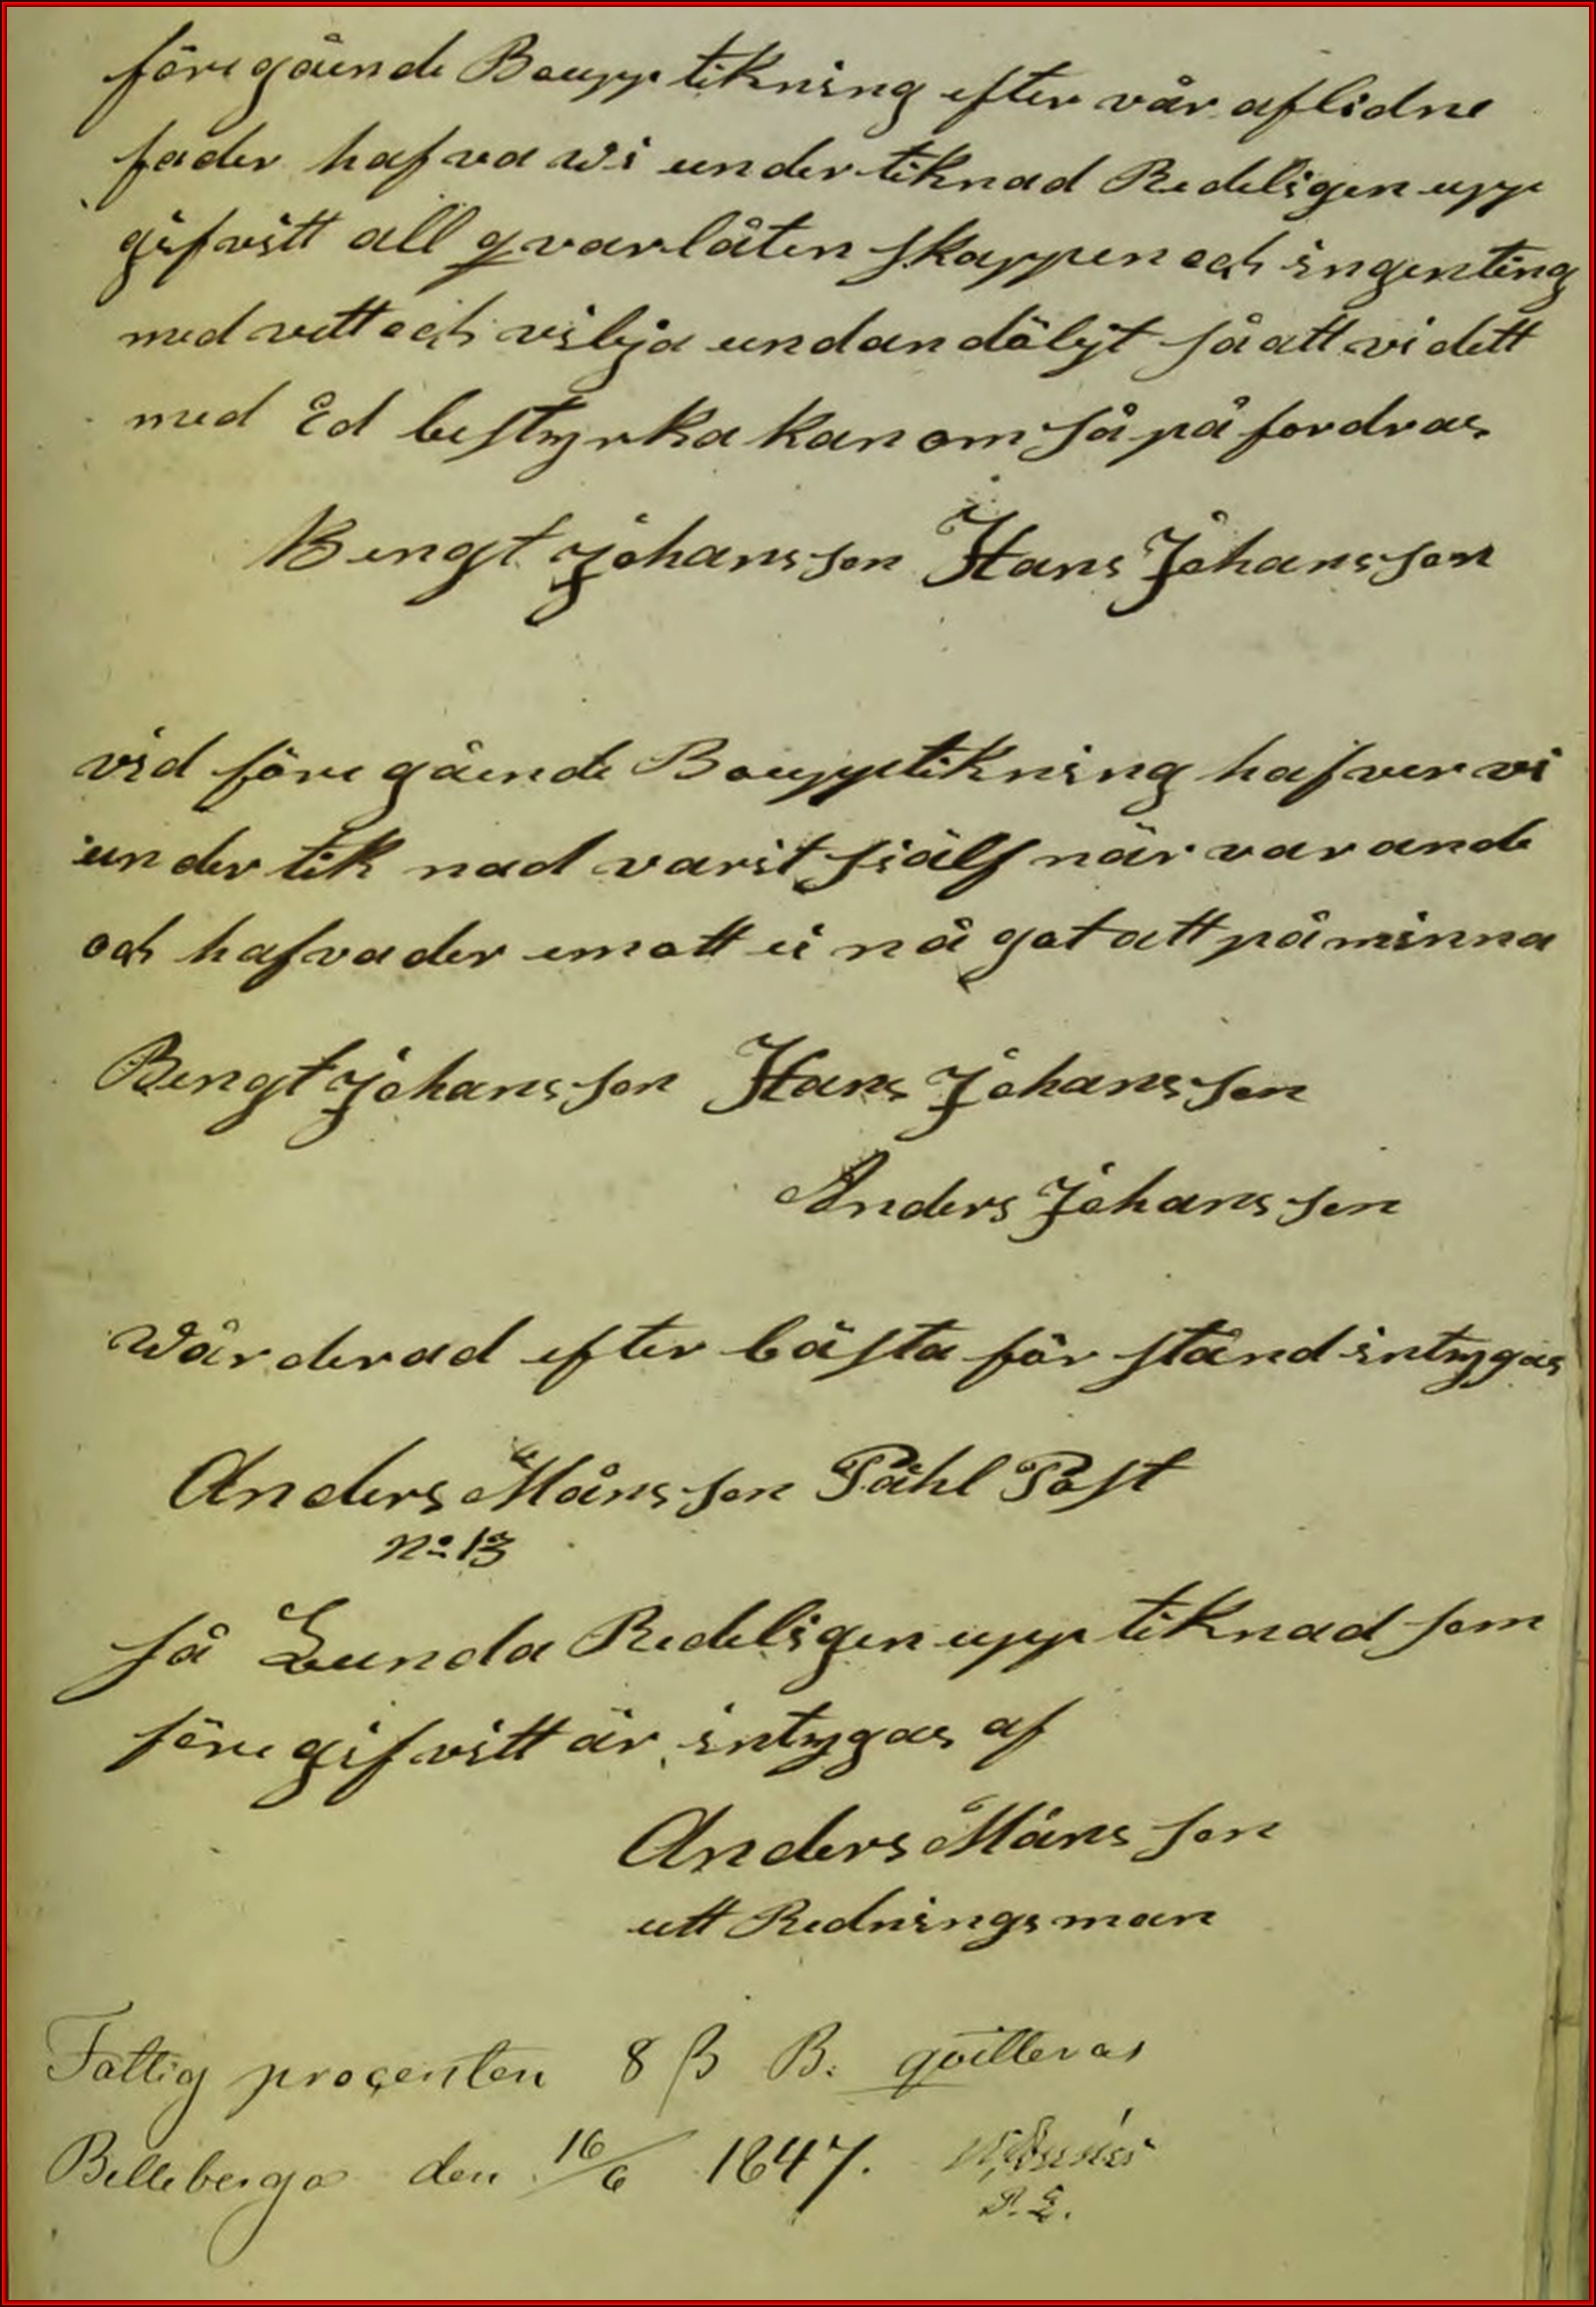 före gående Boupp tikning efter vår aflidne
fader hafva wi under tiknad Redeligen upp
gifvitt all qvarlåten skappen och ingenting
med vett och vilija undan dölijt så att vi dett
med Ed bestyrka kan om så på fordras
Bengt Johansson Hans Johansson
vid före gående Boupptikning hafver vi
under tik nad varit siälf när varande
och hafva der emott ei någat att påminna
Bengt Johansson Hans Johansson
Anders Johansson
Wärderad efter bästa för stånd intygas
Anders Månsson Påhl Påst
No 13
så Lunda Redeligen upp tiknad som
före gifvitt är intygas af
Anders Månsson
utt Redningsman
Fattig procenten 8 ß B. qvitteras
Billeberga den 16/6 1847.
P. L.